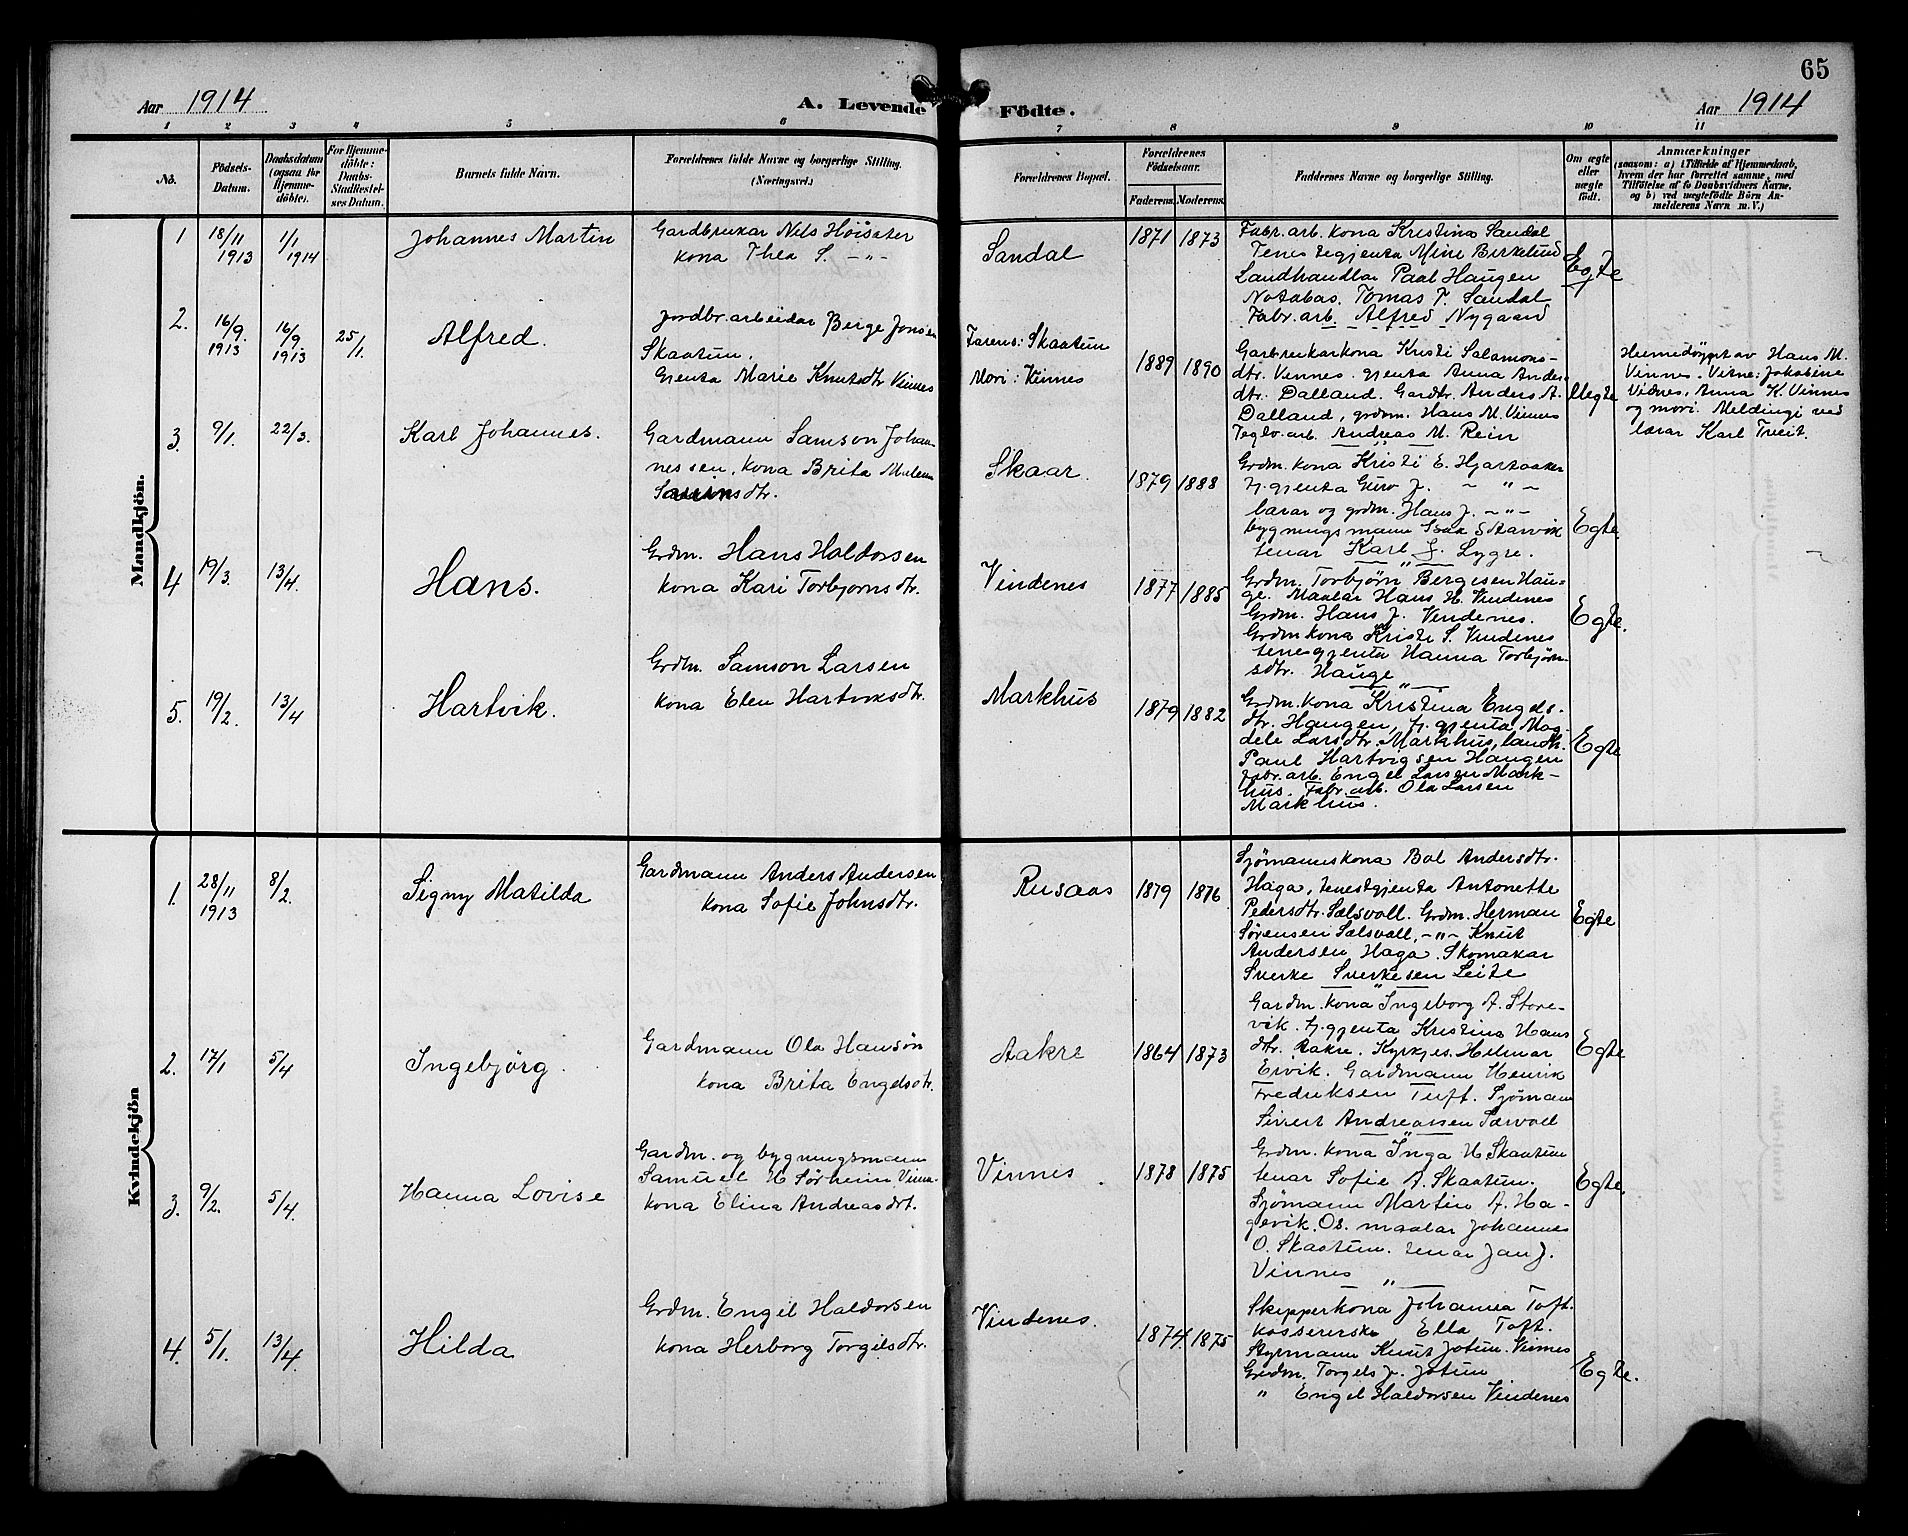 65
Aar 1914
A. Levende Födte.
Aar 1914
1 2 3 4 5 6 7 8 9 10 11
No.
Födsels-
Datum.
Daabsdatum
(ogsaa for
Hjemme-
döbte).
For Hjemme-
döbte:
Daabs-
Stadfæstel-
ses Datum.
Barnets fulde Navn.
Forældrenes fulde Navne og borgerlige Stilling.
(Næringsvei.)
Forældrenes Bopæl.
Forældrenes
Födselsaar.
Faderens. Moderens.
Faddernes Navne og borgerlige Stilling.
Om ægte
eller
uægte
födt.
Anmærkninger
(saasom: a) i Tilfælde af Hjemmedaab,
hvem der har forrettet samme, med
Tilföielse af to Daabsvidners Navne,
og b) ved uægtefödte Börn An-
melderens Navn m. V.)
Mandkjön.
1
18/11
1913
1/1
1914
Johannes Martin
Gardbrukar Nels Höisæter
kona Thea S. -"-
Sandal
1871 1873
Fabr. arb. kona Kristina Sandal
Tenestegjenta Mine Birkelund
Landhandlar Paal Haugen
Notabas. Tomas T. Sandal
Fabr. arb. Alfred Nygaard
Egte
2.
16/9.
1913
16/9
1913
25/1.
Alfred.
Jordbr. arbeidar Berge Jonsen
Skaatun.
Gjenta Marie Knutsdtr Vinnes
Farens: Skaatun
Mori: Vinnes
1889 1890
Garbrukarkona Kristi Salamons-
dtr. Vinnes. gjenta Anna Anders
dtr. Dalland. Gardbr. Anders A.
Dalland, grdm. Hans M. Vinnes
Teglv. arb. Andreas M. Rein
Uegte
Heimedøypt av Hans M.
Vinnes. Vitne: Jakobine
Vinnes, Anna K. Vinnes
og mori. Meldingi ved
lærar Karl Tveit.
3.
9/1.
22/3.
Karl Johannes.
Gardmann Samson Johan-
nessen, kona Brita
Skaar.
1879 1888
Grdm. kona Kristi E. Hjartaaker
h. gjenta Guro J. - " -
lærar og grdm. Hans J. - " -
bygningsmann Isak Starvik
tenar Karl J. Lygre.
Egte
4
19/3.
13/4.
Hans.
Grdm. Hans Haldorsen
kona Kari Torbjornsdtr.
Vindenes
1877 1885
Grdm. Torbjørn Bergesen Hau-
ge. Maalar Hans H. Vindenes
Grdm. Hans J. Vindenes.
Grdm kona Kriste S. Vindenes
tenesgjenta Hanna Torbjørn-
sdtr. Hauge
Egte.
5.
19/2.
13/4
Hartvik.
Grdm. Samson Larsen
kona Elen Hartviksdtr.
Markhus
1879 1882
Grdm. kona Kristina Engels-
dtr. Haugen, h. gjenta Mag-
dele Larsdtr. Markhus, landh.
Paul Hartvigsen Haugen
Fabr. arb. Engel Larsen Mark-
hus. Fabr. arb. Ola Larsen
Markhus.
Egte
Kvindekjön
1.
28/11
1913
8/2.
Signy Matilda
Gardmann Anders Andersen
kona Sofie Johnsdtr.
Rusaas
1879 1876
Sjömannskona Bol Andersdtr.
Haga, tenestgjenta Antonette
Pedersdtr. Sælsvoll. Grdm. Herman
Sørensen Sælsvoll, -"- Knut
Andersen Haga. Skomakar
Sverke Sverkesen Leite
Egte
2.
17/1
5/4
Ingebjörg.
Gardmann Ola Hansøn
kona Brita Engelsdtr.
Aakre
1864 1873
Gardm. kona Ingeborg A. Store-
vik. h. gjenta Kristina Hans
dtr. Aakre. Kyrkjes. Helmar
Eivik. Gardmann Henrik
Fredriksen Tuft. Sjömann
Sivert Andreassen Sævoll
Egte
3.
9/2.
5/4.
Hanna Lovise
Gardm. og bygningsmann
Samuel H Sørheim, Vinnes
kona Elina Andreasdrt.
Vinnes
1878 1875
Grdm. kona Inga H Skaatun
tenar Sofie A. Skaatun.
Sjömann Martin A. Ha-
gevik, Os. maalar Johannes
O. Skaatun. tenar Jan J.
Vinnes
Egte.
4.
5/1.
13/4
Hilda
Grdm. Engel Haldorsen
kona Herborg Torgilsdtr.
Vindenes.
1874. 1875
Skipperkona Johanna Toft.
kassererske Ella Toft.
Styrmann Knut Jotun. Vinnes
Grdm. Torgels J. Jotun
" Engel Haldorsen Vindenes
Egte.